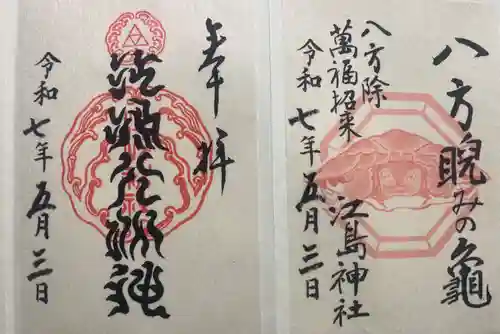 八方睨みの龜
八方除
江島神社
萬福招来
令和七年五月三日
奉拝
令和七年五月三日